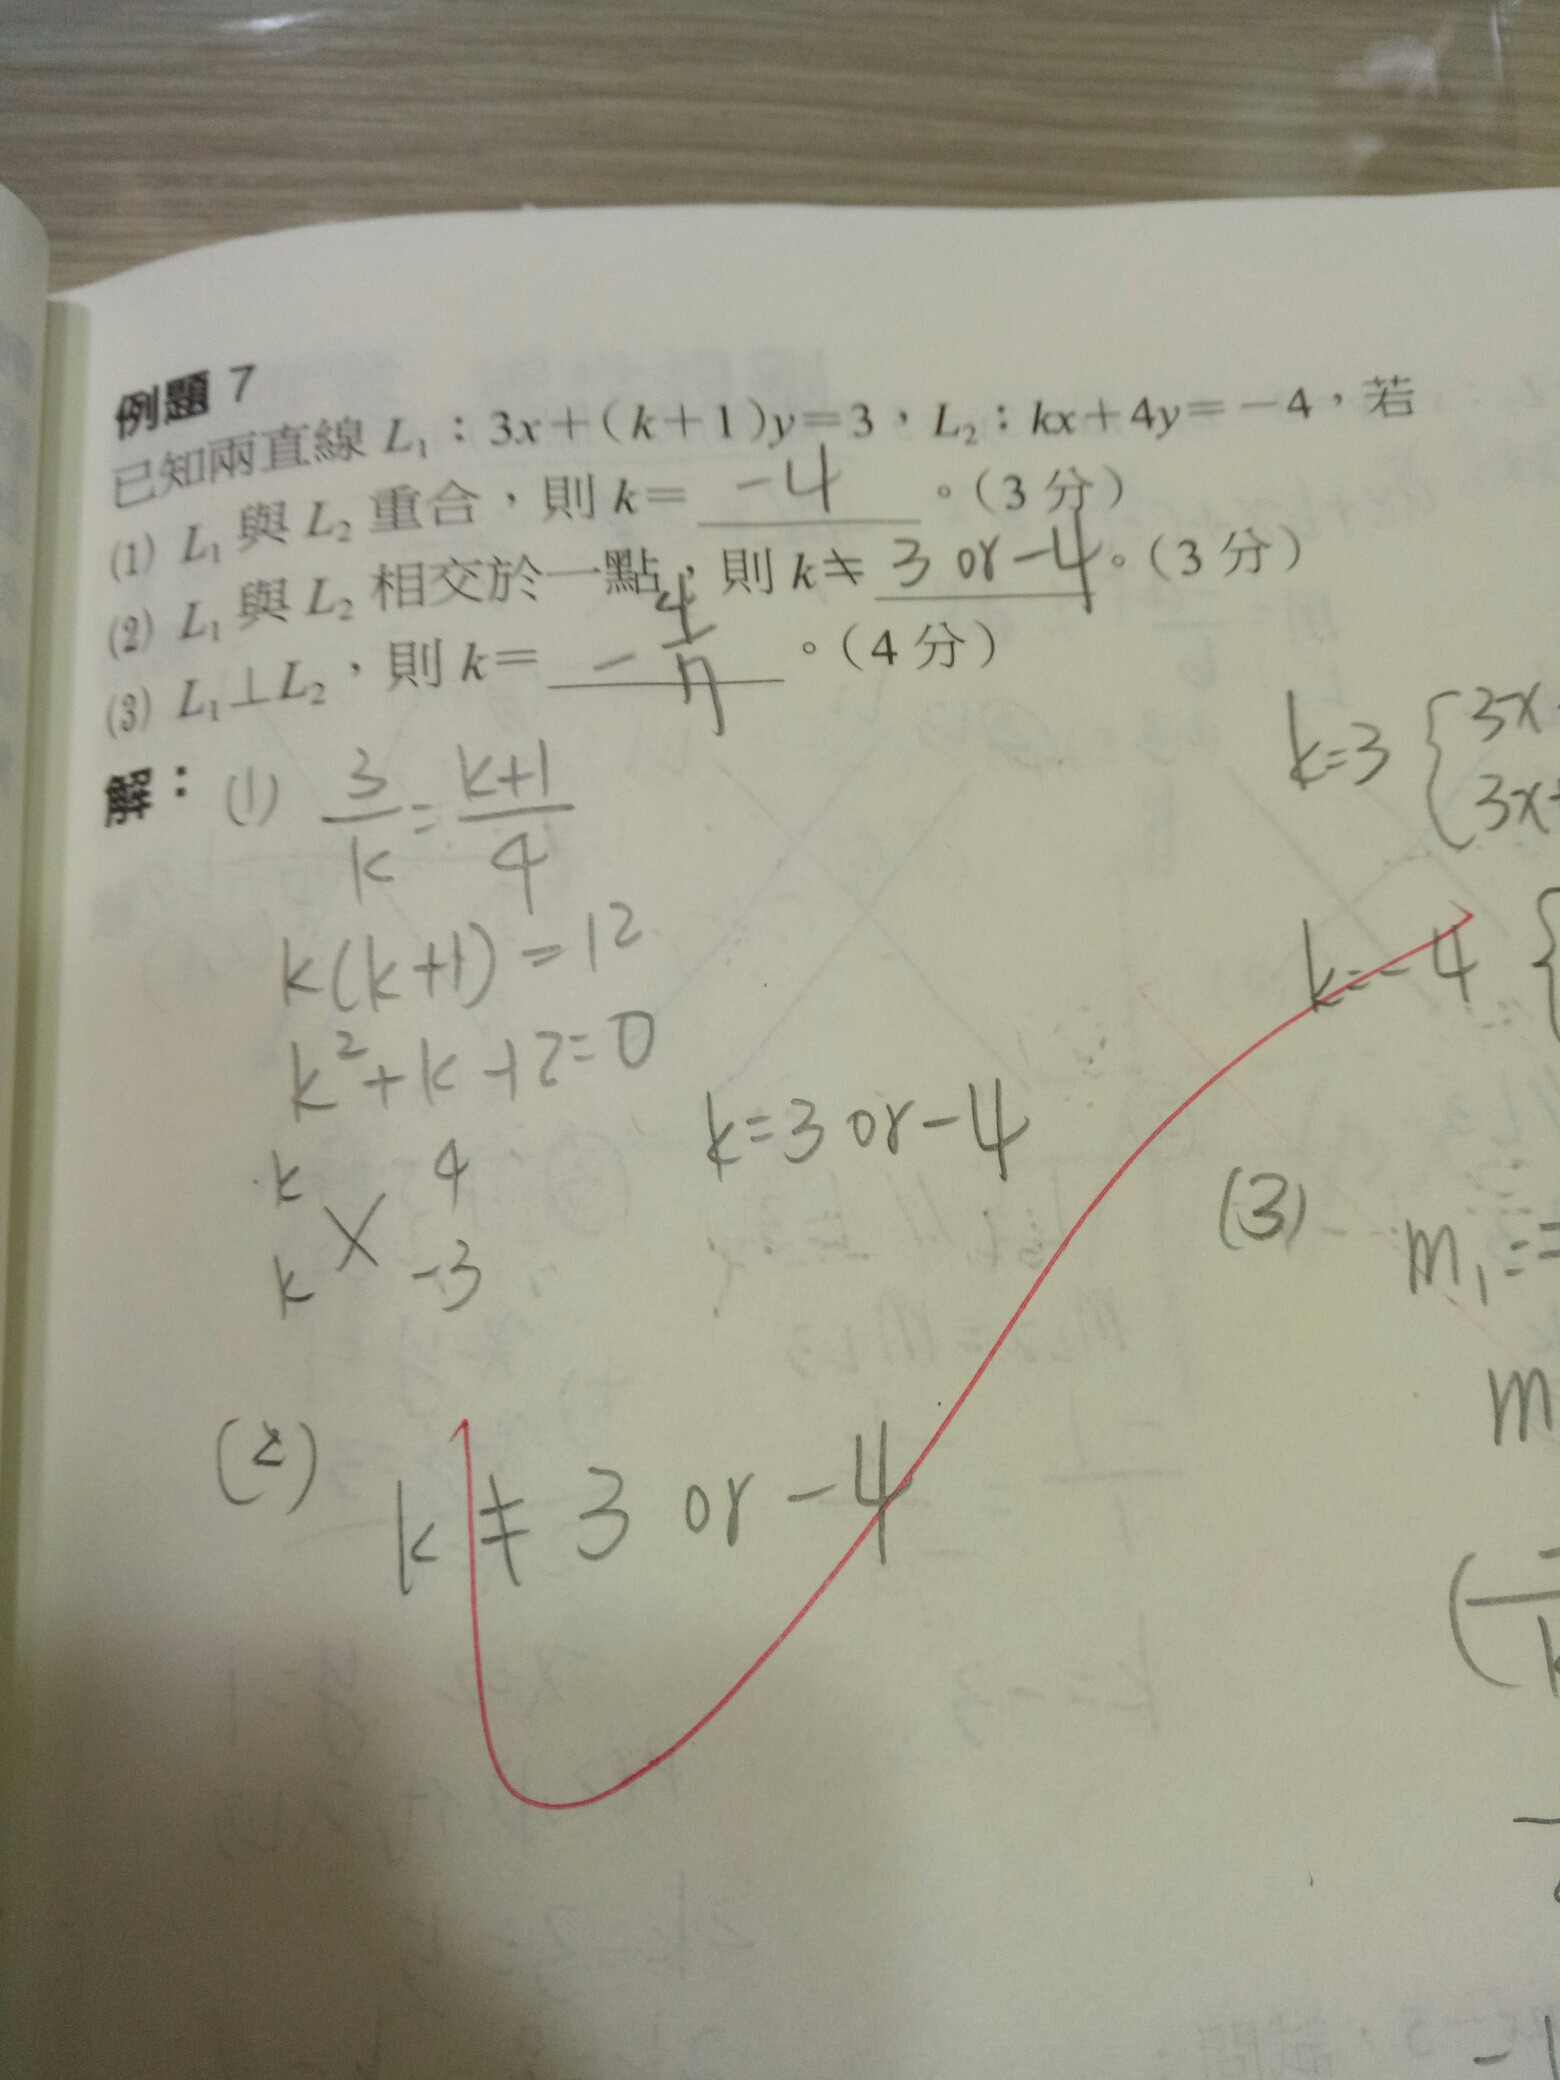 例題 7
已知兩直線 L₁：3x+(k+1)y=3，L₂：kx+4y=-4，若
(1) L₁ 與 L₂ 重合，則 k= -4 。(3 分)
(2) L₁ 與 L₂ 相交於一點，則 k≠ 3 or -4。(3 分)
(3) L₁⊥L₂，則 k= -4/7 。(4 分)
解：(1) 3/k = (k+1)/4
k(k+1) = 12
k²+k-12=0
k 4
k -3
k=3 or -4
(2) k ≠ 3 or -4
k=3 { 3x
3x+
k=-4 {
(3)
m₁=
m